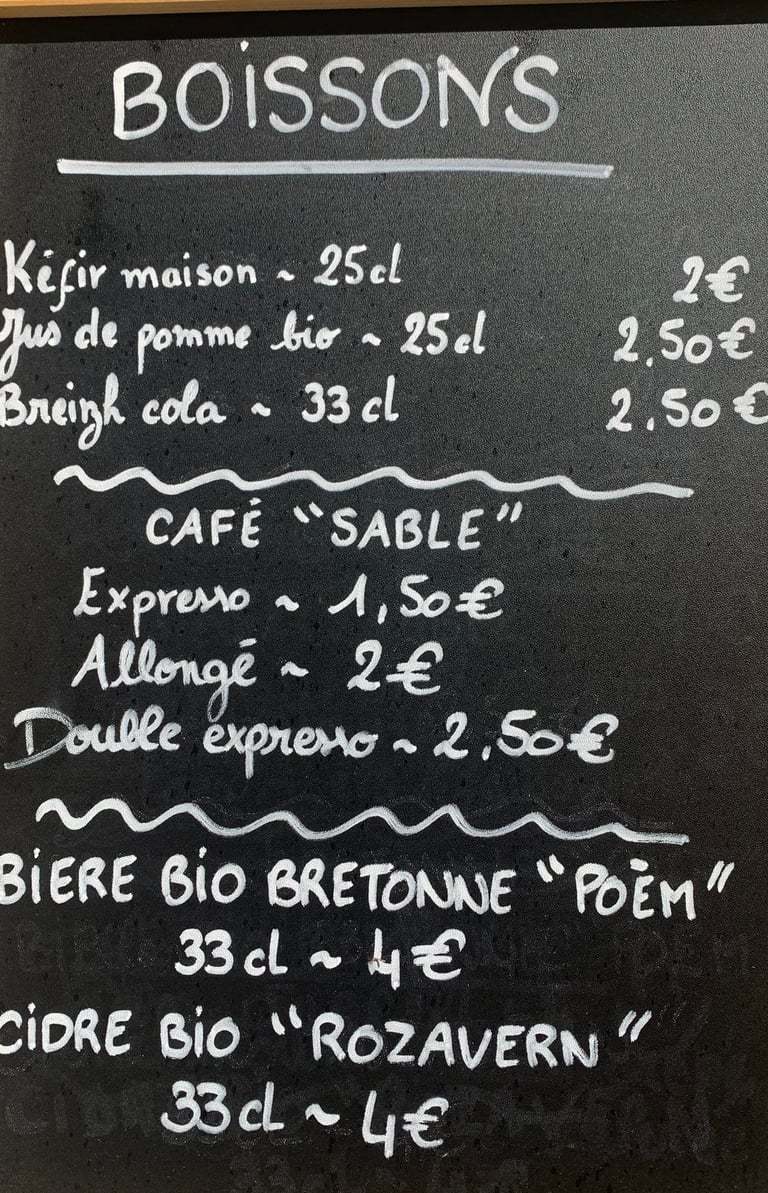 BOISSONS
Kéfir maison ~ 25cl 2€
Jus de pomme bio ~ 25cl 2.50€
Breizh cola ~ 33cl 2.50€
CAFÉ "SABLE"
Expresso ~ 1,50€
Allongé ~ 2€
Double expresso ~ 2,50€
BIERE BIO BRETONNE "POËM"
33cl ~ 4€
CIDRE BIO "ROZAVERN"
33cl ~ 4€